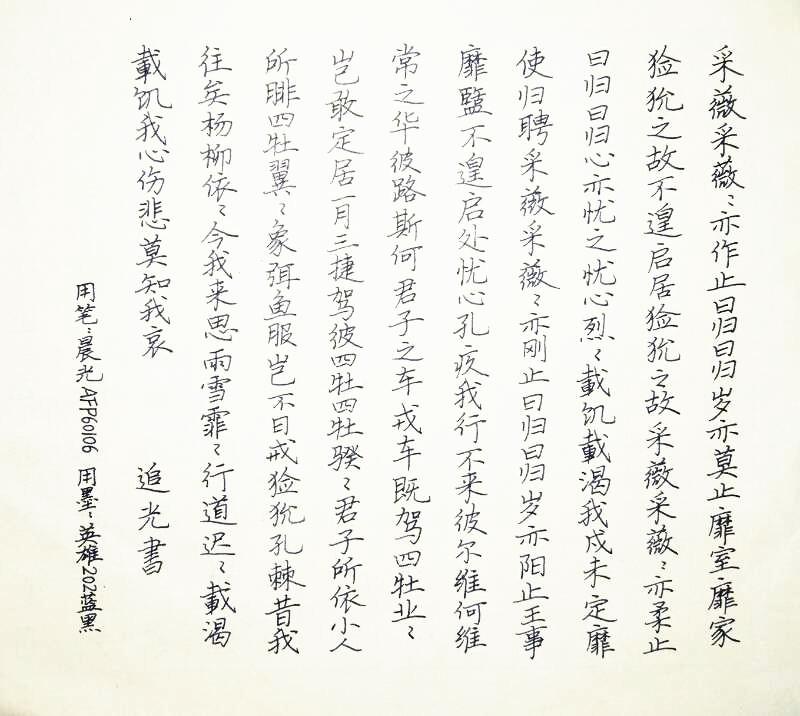 采薇采薇〻亦作止曰归曰归岁亦莫止靡室靡家
猃狁之故不遑启居猃狁之故采薇采薇〻亦柔止
曰归曰归心亦忧之忧心烈〻載饥載渴我戍未定靡
使归聘采薇采薇〻亦刚止曰归曰归岁亦阳止王事
靡盬不遑启处忧心孔疚我行不来彼尔维何维
常之华彼路斯何君子之车戎车既驾四牡业〻
岂敢定居一月三捷驾彼四牡四牡骙〻君子所依小人
所腓四牡翼〻象弭鱼服岂不日戒猃狁孔棘昔我
往矣杨柳依〻今我来思雨雪霏〻行道迟〻載渴
載饥我心伤悲莫知我哀
追光書
用笔:晨光AFP60106 用墨:英雄202蓝黑